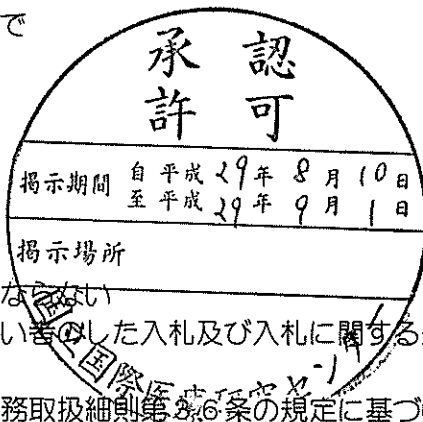 で
承認
許可
掲示期間 自 平成 29年 8月 10日
至 平成 29年 9月 1日
掲示場所
ならない
した入札及び入札に関する
国立国際医療研究センター
務取扱細則第36条の規定に基づ